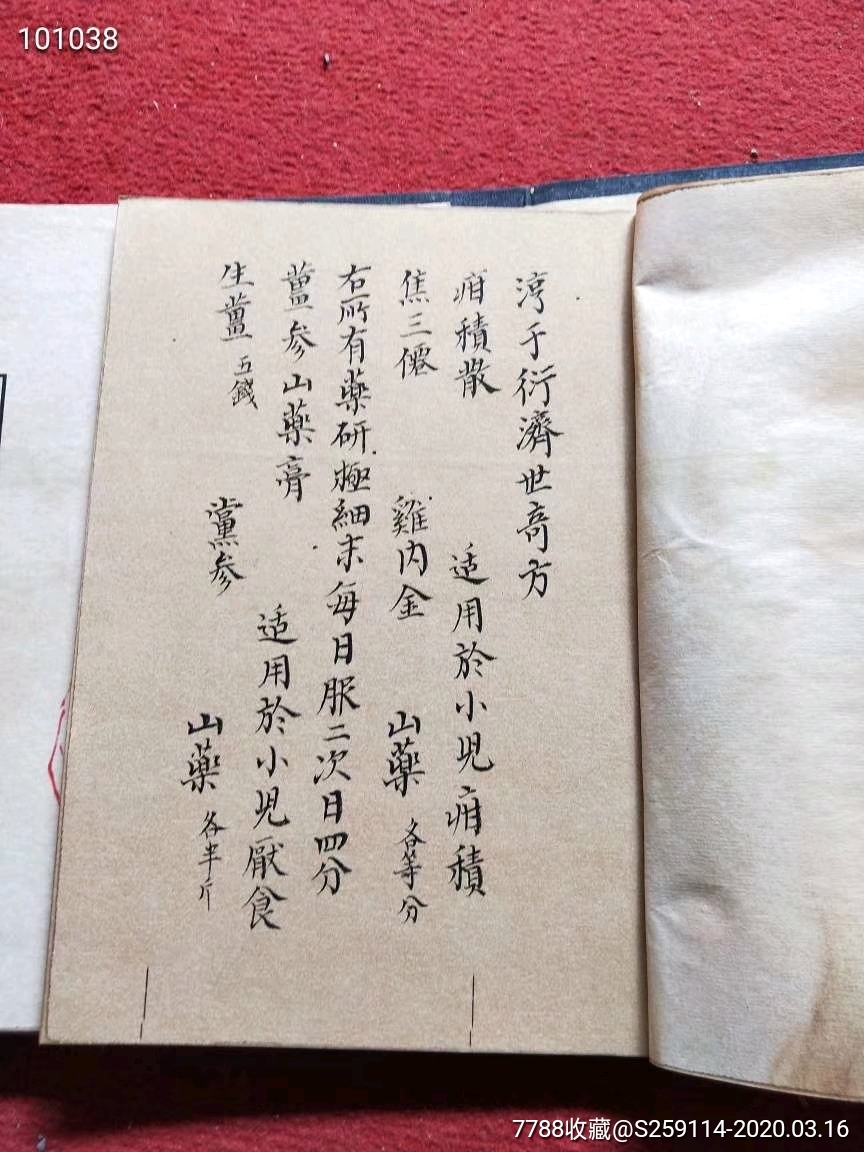 101038
淳于衍濟世奇方
疳積散 适用於小児疳積
焦三僊 雞内金 山藥 各等分
右所有藥研極細末每日服二次日四分
薑参山藥膏 适用於小児厭食
生薑 五錢 黨参 山藥 各半斤
7788收藏@S259114-2020.03.16